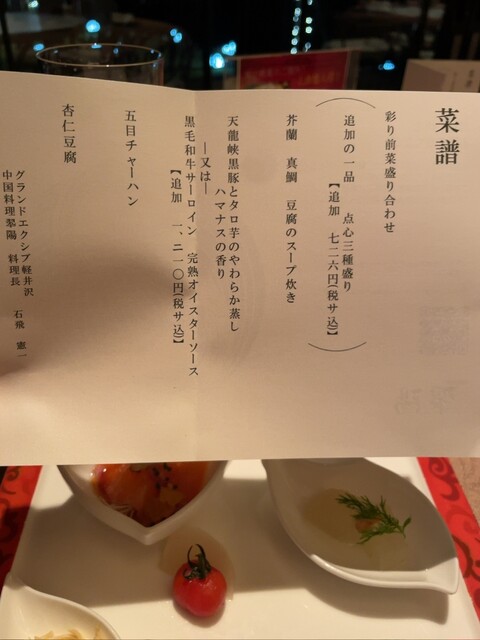 菜譜
彩り前菜盛り合わせ
追加の一品　点心三種盛り
【追加　七二六円(税サ込)】
芥蘭　真鯛　豆腐のスープ炊き
天龍峡黒豚とタロ芋のやわらか蒸し
ハマナスの香り
―又は―
黒毛和牛サーロイン　完熟オイスターソース
【追加　一、二一〇円(税サ込)】
五目チャーハン
杏仁豆腐
グランドエクシブ軽井沢
中国料理翠陽　料理長　石飛　憲一